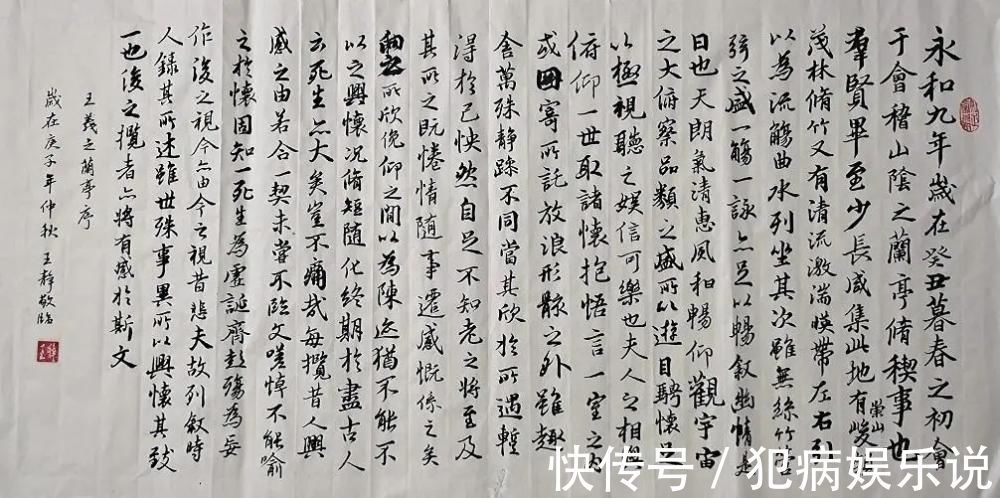 永和九年歲在癸丑暮春之初會
于會稽山陰之蘭亭脩稧事也
羣賢畢至少長咸集此地有崇山峻
茂林脩竹又有清流激湍暎帶左右引
以為流觴曲水列坐其次雖無絲竹管
弦之盛一觴一詠亦足以暢敘幽情是
日也天朗氣清惠風和暢仰觀宇宙
之大俯察品類之盛所以遊目騁懷足
以極視聽之娛信可樂也夫人之相與
俯仰一世取諸懷抱悟言一室之內
或因寄所託放浪形骸之外雖趣
舍萬殊静躁不同當其欣於所遇蹔
得於己怏然自足不知老之將至及
其所之既惓情隨事遷感慨係之矣
向之所欣俛仰之間以為陳迹猶不能不
以之興懷况脩短隨化終期於盡古人
云死生亦大矣豈不痛哉每攬昔人興
感之由若合一契未嘗不臨文嗟悼不能喻
之於懷固知一死生為虛誕齊彭殤為妄
作後之視今亦由今之視昔悲夫故列敘時
人錄其所述雖世殊事異所以興懷其致
一也後之攬者亦將有感於斯文
王羲之蘭亭序
歲在庚子年仲秋王静臨
快传号/犯病娱乐说